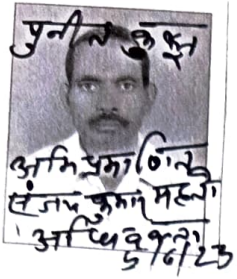 पुनीत कुमार
अभिप्रमाणित
संजय कुमार महतो
अधिवक्ता
5/6/23